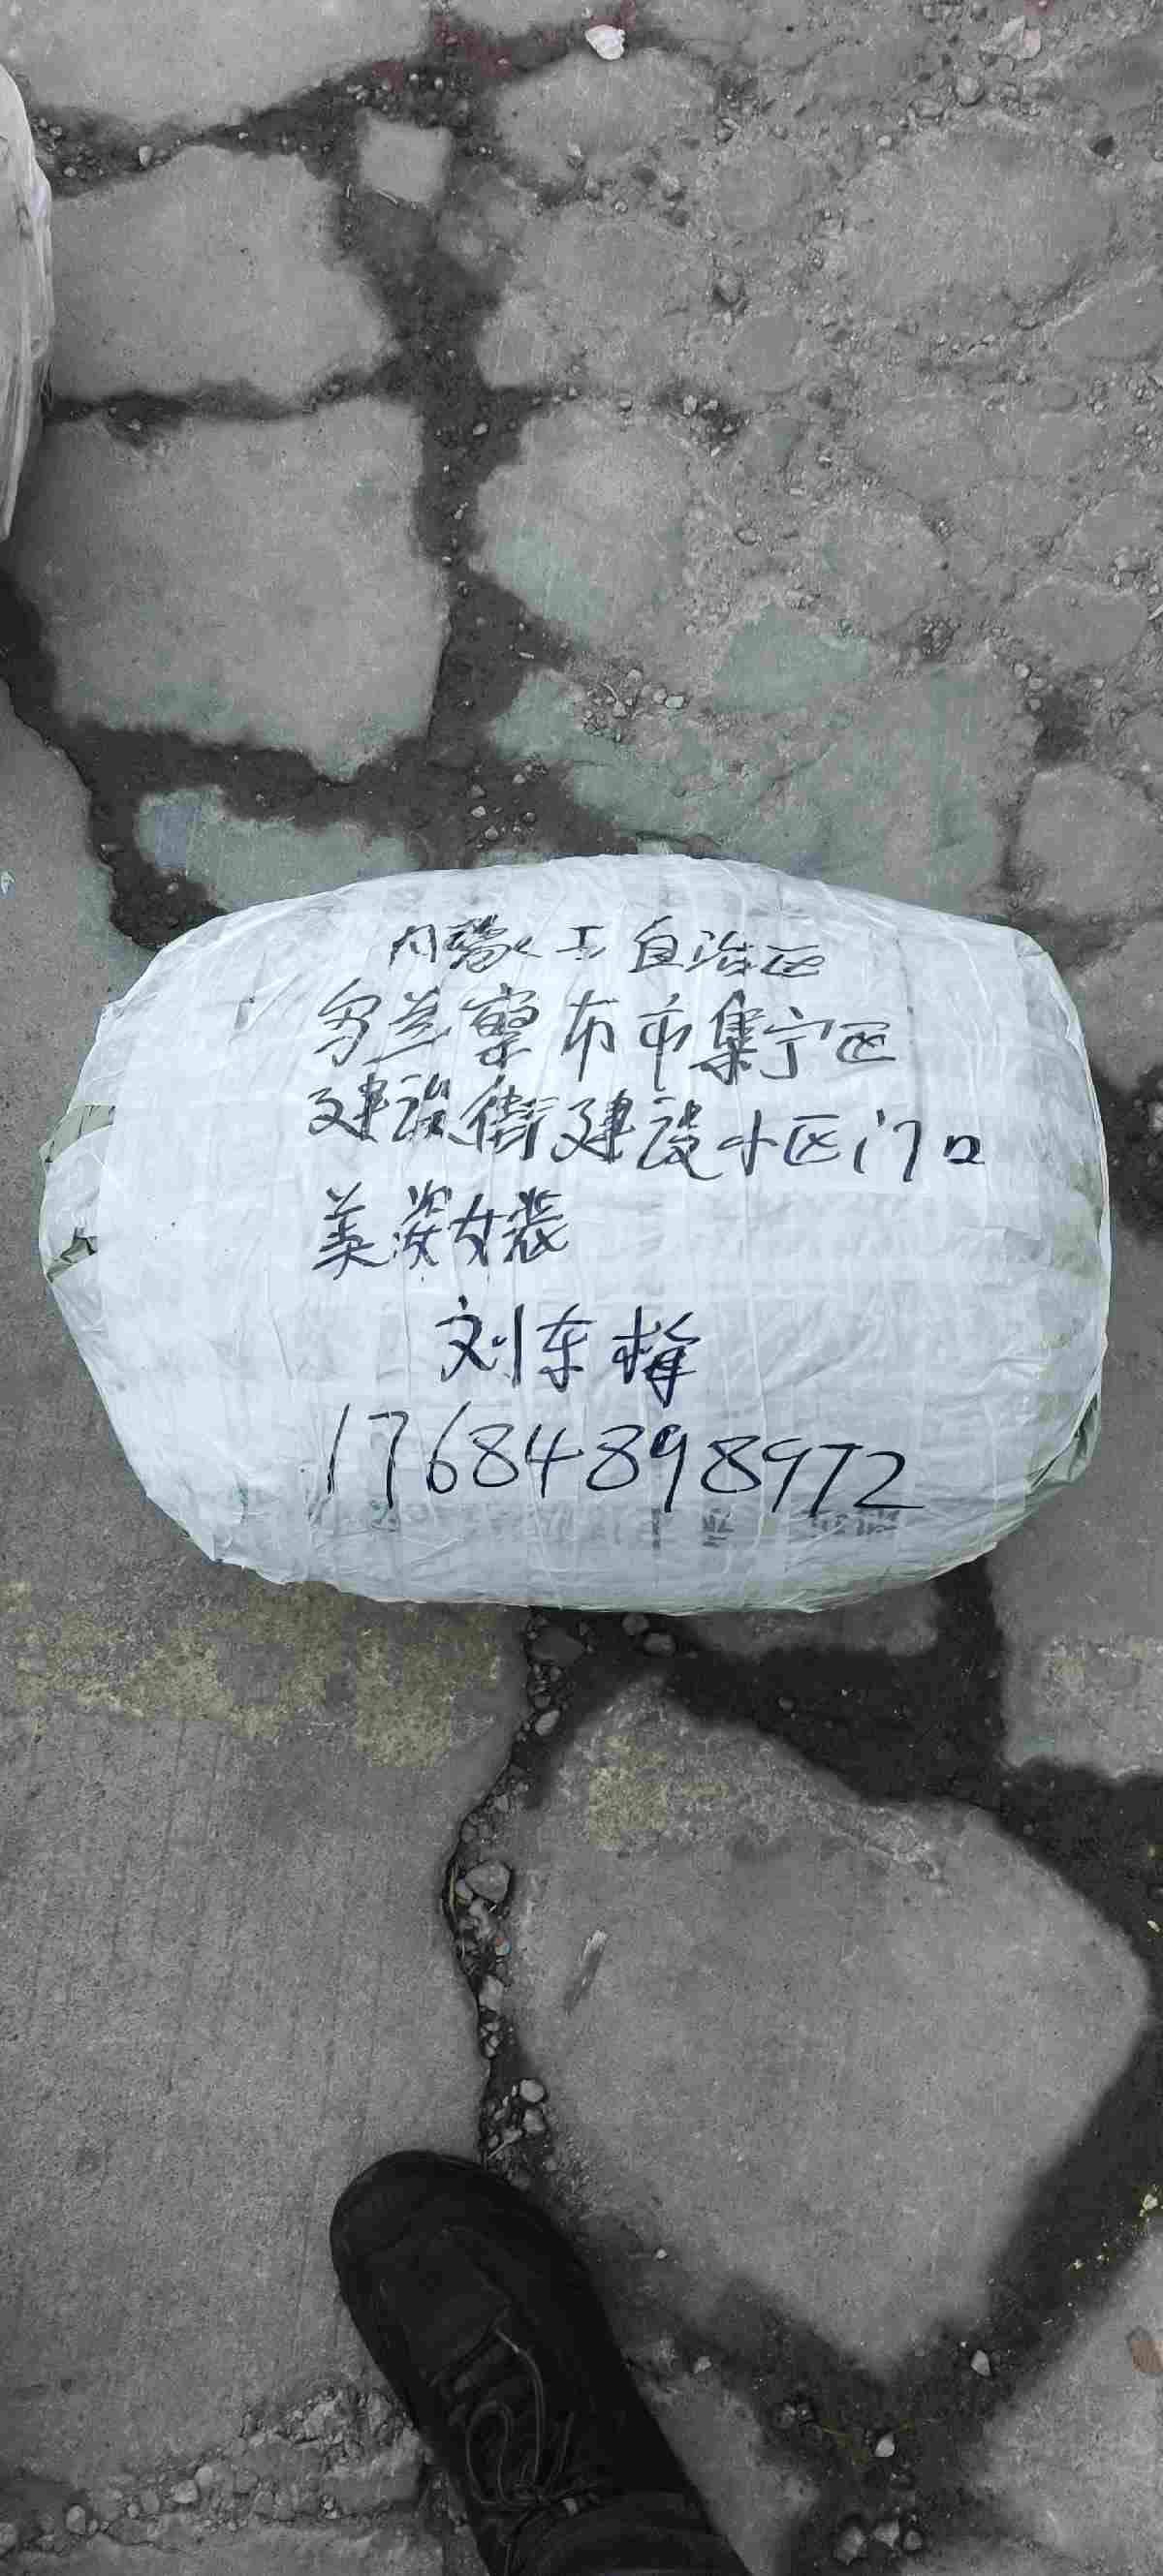 内蒙古自治区
乌兰察布市集宁区
建设街建设小区门口
美姿女装
刘东梅
17684898972